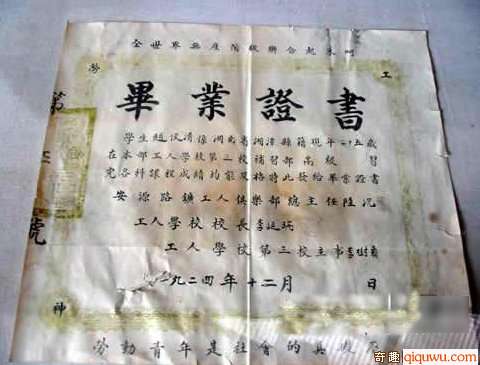 全世界無產階級聯合起來啊
勞 工
畢業證書
學生趙俊清係湖南省湘潭縣籍現年 五歲
在本部工人學校第三校補習部高級 習
完各科課程成績均能及格特此發給畢業證書
安源路鑛工人俱樂部總主任陸沉
工人學校校長李延瑞
工人學校第三校主事李樹
一九二四年十二月 日
第 號
神
勞動青年是社會的真
奇趣 qiquwu.com